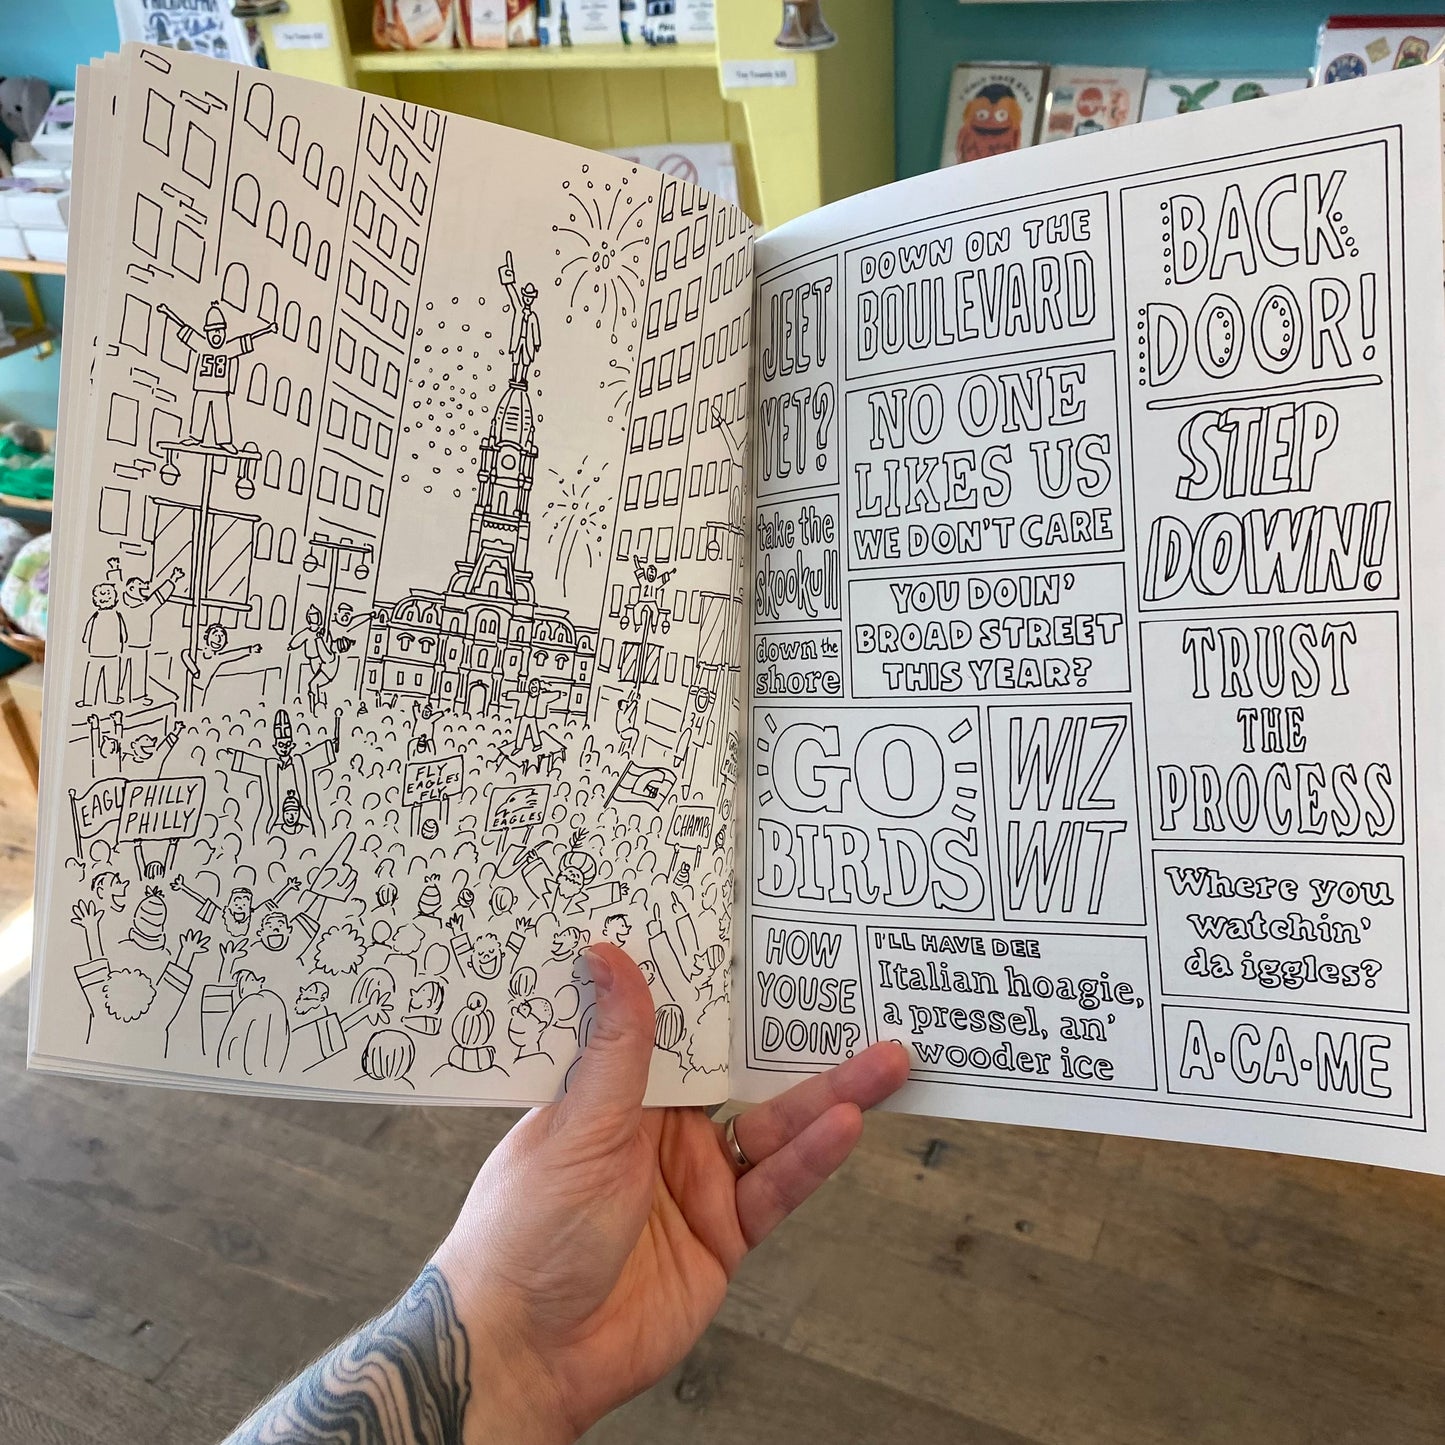 PHILADELPHIA
58
21
EAGL
PHILLY
PHILLY
FLY
EAGLES
FLY
EAGLES
CHAMPS
JEET
YET?
take the
skookull
down the
shore
DOWN ON THE
BOULEVARD
NO ONE
LIKES US
WE DON'T CARE
YOU DOIN'
BROAD STREET
THIS YEAR?
GO
BIRDS
WIZ
WIT
HOW
YOUSE
DOIN?
I'LL HAVE DEE
Italian hoagie,
a pressel, an'
wooder ice
BACK
DOOR!
STEP
DOWN!
TRUST
THE
PROCESS
Where you
watchin'
da iggles?
A•CA•ME